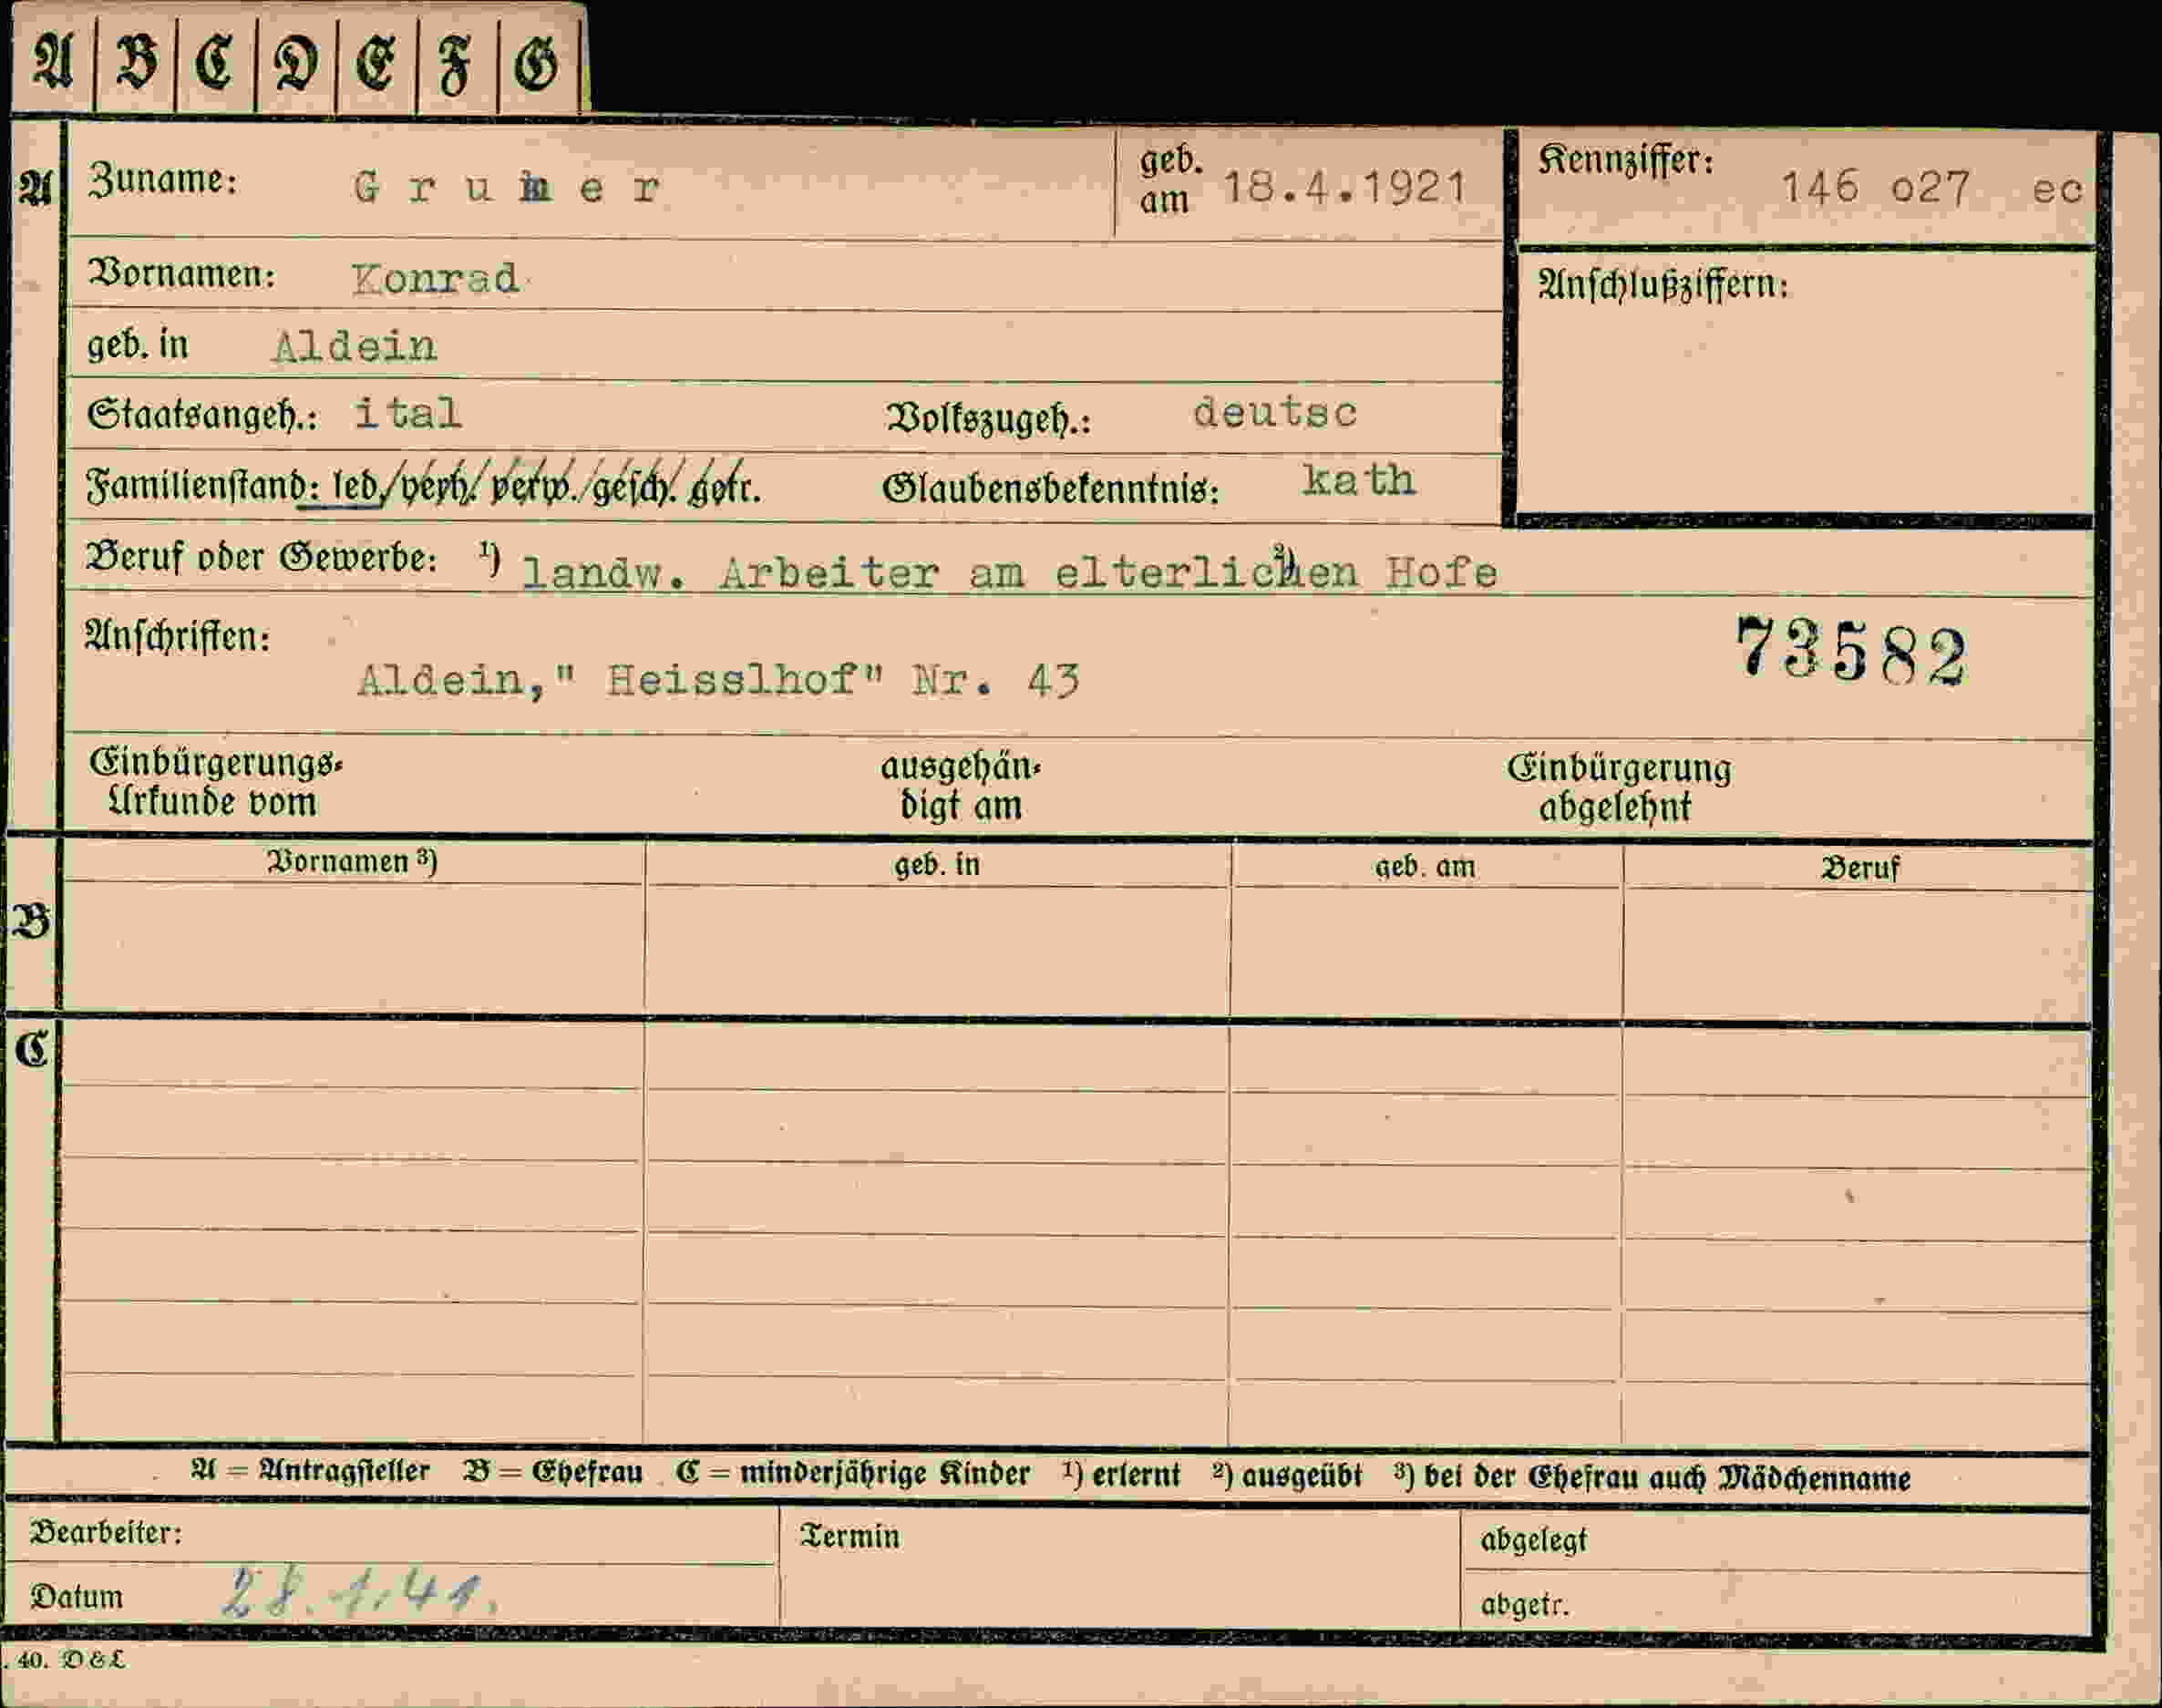 A B C D E F G
A Zuname: Grumer geb. am 18.4.1921 Kennziffer: 146 o27 ec
Vornamen: Konrad Anschlußziffern:
geb. in Aldein
Staatsangeh.: ital Volkszugeh.: deutsc
Familienstand: led./verh./verw./gesch. getr. Glaubensbekenntnis: kath
Beruf oder Gewerbe: ¹) landw. Arbeiter am elterlichen Hofe ²)
Anschriften: 73582
Aldein," Heisslhof" Nr. 43
Einbürgerungs- ausgehän- Einbürgerung
Urkunde vom digt am abgelehnt
Vornamen ³) geb. in geb. am Beruf
B
C
A = Antragsteller B = Ehefrau C = minderjährige Kinder ¹) erlernt ²) ausgeübt ³) bei der Ehefrau auch Mädchenname
Bearbeiter: Termin abgelegt
Datum 28.1.41. abgetr.
. 40. D & L